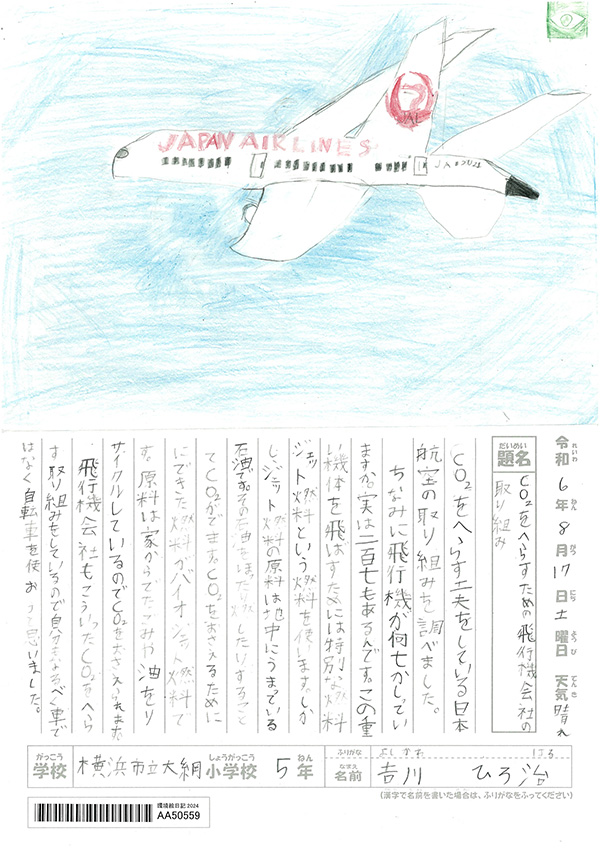 JAPAN AIRLINES
JAL
令和6年8月17日土曜日 天気晴れ
れいわ ねん がつ にち ようび てんき
だいめい
題名
CO₂をへらすための飛行機会社の
取り組み
CO₂をへらす工夫をしている日本
航空の取り組みを調べました。
ちなみに飛行機が何七かしてい
ますか。実は二百七もあるんです。この重
い機体を飛ばすためには特別な燃料
ジェット燃料という燃料を使います。しか
し、ジェット燃料の原料は地中にうまっている
石油です。その石油をほったり燃したりすること
てCO₂がでます。CO₂をおさえるために
にできた燃料がバイオジェット燃料で
す。原料は家からでたごみや油をり
サイクルしているのでCO₂をおさえられます。
飛行機会社もこういったCO₂をへら
す取り組みをしているので自分もなるべく車で
はなく自転車を使おうって思いました。
がっこう しょうがっこう ねん
学校 横浜市立大綱小学校 5年
ふりがな よしかわ はる
なまえ
名前 吉川 ひろ治
(漢字で名前を書いた場合は、ふりがなをふってください)
環境絵日記 2024
AA50559